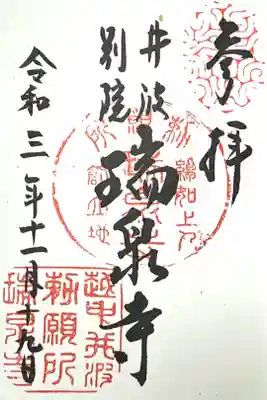 参拝
井波
別院
瑞泉寺
令和三年十一月十九日
越中井波
勅願所
瑞泉寺